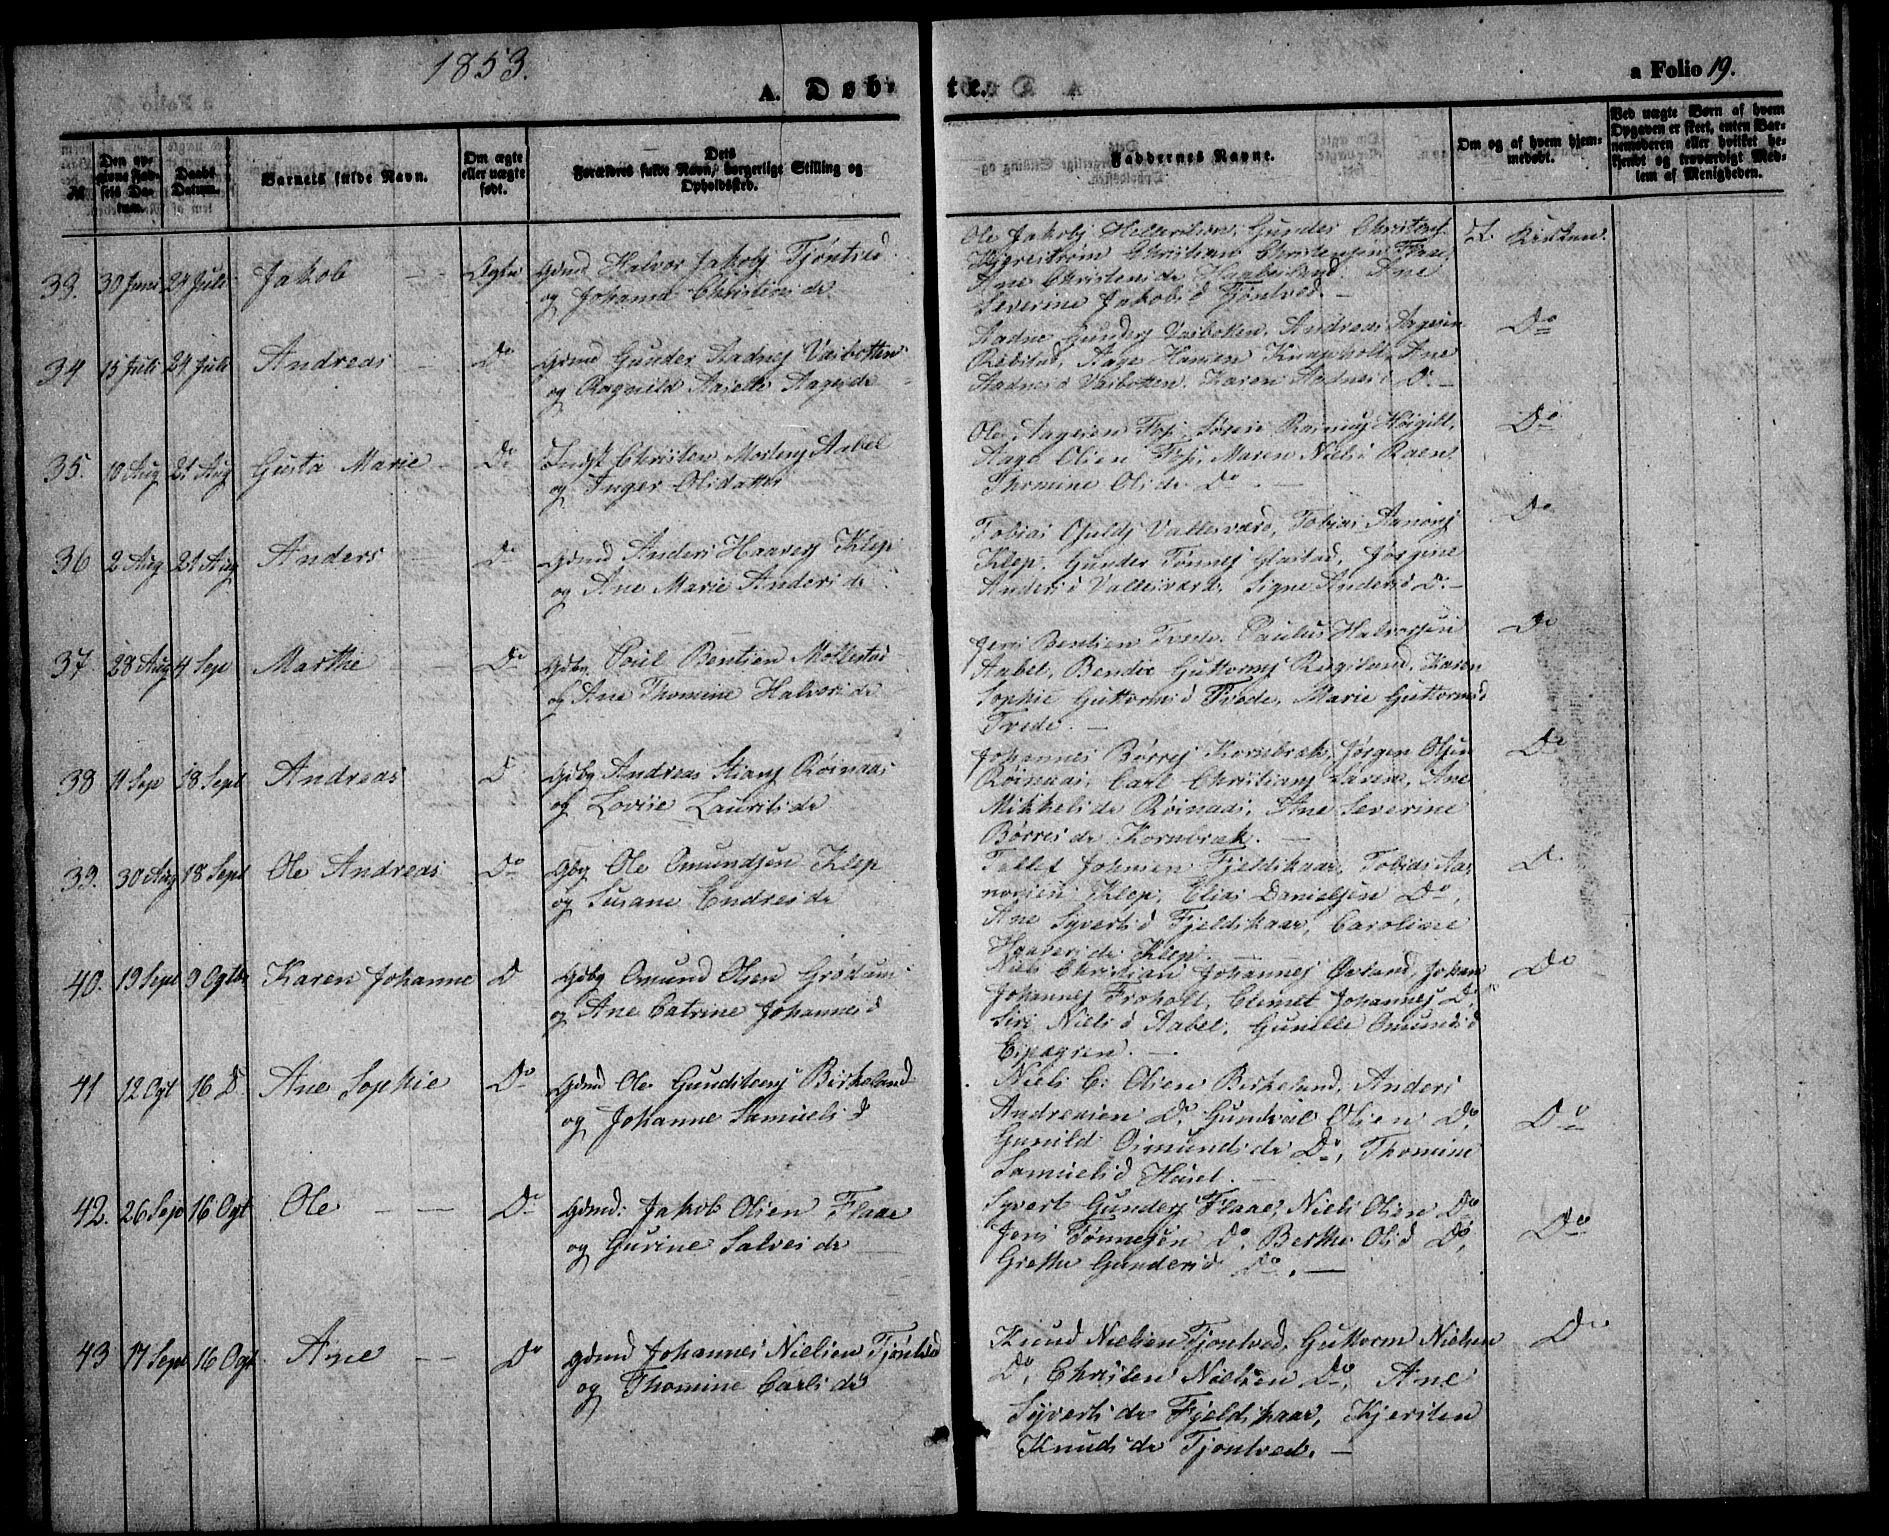 1853.
A. Döb-
te.
a Folio 19.
№
Den op-
givne Fød-
sels Da-
tum.
Daabs
Datum.
Barnets fulde Navn.
Om ægte
eller uægte
født.
Dets
Forældres fulde Navn, borgerlige Stilling og
Opholdssted.
Faddernes Navne.
Om og af hvem hjem-
medøbt.
Ved uægte Børn af hvem
Opgaven er skeet, enten Bar-
nemoderen eller hvilket be-
kjendt og troværdigt Med-
lem af Menigheden.
33. 30 Juni 24 Juli Jakob — Ægte Gdmd Halvor Jakobs Tjöntved
og Johanne Christens dr
Ole Jakobs Gunder Christens
Christian Christensen
Ane Christens dr Ane
Severine Jakobs d Tjöntved. —
I Kirken.
34 15 Juli 24 Juli Andreas — Do Gdmd Gunder Aadnes Vaibotten
og Ragnild Aasette Aages dr
Aadne Gunders Vaibotten, Andreas Aagesen
Röbstad, Aage Hansen Knapholt, Ane
Aadnes d Vaibotten, Karen Aadnes d Do —
Do
35. 10 Aug 21 Aug Gusta Marie — Do Indst Christen Mortens Aabel
og Inger Olsdatter
Ole Aagesen
Aage Olsen Maren Niels d Raen
Thomine Ols dr Do —
Do
36 2 Aug 21 Aug Anders — Do Gdmd Anders Haaves Klep
og Ane Marie Anders dr
Tobias Vallesværd, Tobias Aanons
Klep, Gunder Tönnes Jörgine
Anders d Vallesværd, Signe Anders d Do —
Do
37. 28 Aug 4 Sept Marthe — Do Gdbg Poul Bentsen Mollestad
og Ane Thomine Halvors dr
Jens Bentsen Tvede, Paulus Halvorsen
Aabel, Bendix Guttorms Rugsland, Karen
Sophie Guttorms d Tvede, Marie Guttorms d
Tvede. —
Do
38 11 Sep 18 Sept Andreas D Gdbg Andreas Stians Röinaas
og Lovise Laurits dr
Johannes Börres Kornbræk, Jörgen Olsen
Röinaas, Carl Christians Ane
Mikkels dr Röinaas, Ane Severine
Börres dr Kornbræk. —
Do
39. 30 Aug 18 Sept Ole Andreas Do Gdbg Ole Omundsen Klep
og Susane Endres dr
Tellef Johnsen Fjeldskaar, Tobias Aa-
nonsen Klep, Elias Danielsen Do,
Ane Syverts d Fjeldskaar, Caroline
Haavers dr Klep. —
D
40. 19 Sept 9 Ogtbr Karen Johanne D Gdbg Omund Olsen Grödum
og Ane Catrine Johannes d
Niels Christian Johannes Öxland, Johan
Johannes Froholt, Clemet Johannes Do,
Siri Niels d Aabel, Gunille Omunds d
Espegren. —
Do
41 12 Ogt 16 D Ane Sophie Do Gdmd Ole Gundstens Birkeland
og Johanne Samuels d
Niels C. Olsen Birkeland, Anders
Andresen Do, Gundval Olsen Do,
Gunild Osmunds dr Do, Thomine
Samuels d Huset. —
Do
42. 26 Sep 16 Ogt Ole — — Do Gdmd: Jakob Olsen Flaae
og Gurine Salves dr —
Syvert Gunders Flaae, Niels Olsen Do
Jens Tönnesen Do, Berthe Ols d Do,
Grethe Gunders d Do. —
Do
43 17 Sept 16 Ogt Ane — Do Gdmd Johannes Nielsen Tjöntved
og Thomine Carls dr
Knud Nielsen Tjöntved, Guttorm Nielsen
Do, Christen Nielsen Do, Ane
Syverts dr Fjeldskaar, Kjersten
Knuds dr Tjöntved. —
Do